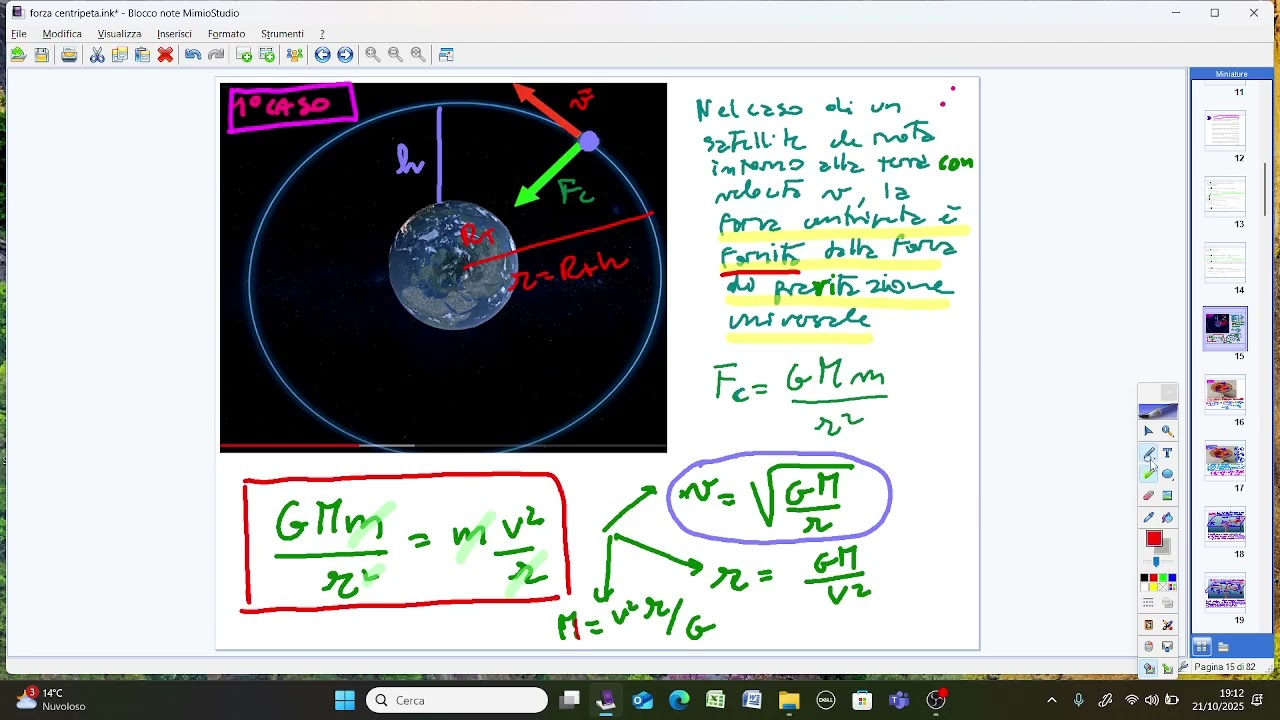 forza centripeta.ink* - Blocco note MimioStudio
File Modifica Visualizza Inserisci Formato Strumenti ?
1° CASO
v
h
Fc
RT
r = RT+h
Nel caso di un
satellite che ruota
intorno alla terra con
velocità v, la
forza centripeta è
fornita dalla forza
di gravitazione
universale
Fc = GMm
r²
v = √GM
r
GMm = m v²
r² r
r = GM
v²
M = v² r/G
Miniature
11
12
13
14
15
16
17
18
19
Pagina 15 di 82
3
14°C
Nuvoloso
Cerca
DELL
19:12
21/10/2023